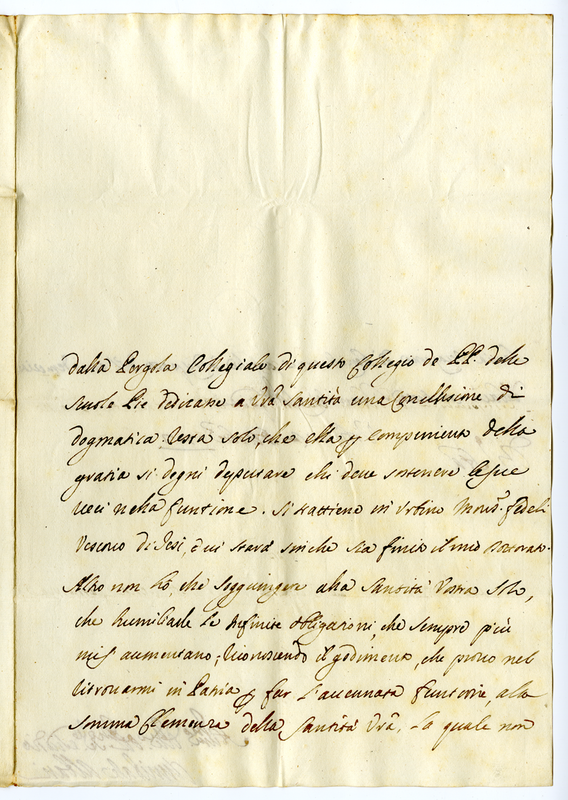 dalla Pergola Collegiale di questo Collegio de PP. delle
Scuole Pie dedicasse a Vrã Santità una Conclusione di
dogmatica. Resta solo, che ella p compimento della
gratia si degni deputare chi deve sostenere le sue
veci nella funtione. Si trattiene in Urbino Mons.r Fedeli
Vescovo di Jesi, e vi starà sin che sia finito il mio
Altro non hò, che soggiungere alla Santità Vostra solo,
che humiliarle le infinite obligationi, che sempre più
mi si aumentano; riconoscendo il godimento, che provo nel
ritrovarmi in Patria p far l'accennata funtione, alla
somma Clemenza della Santità Vrã. La quale non